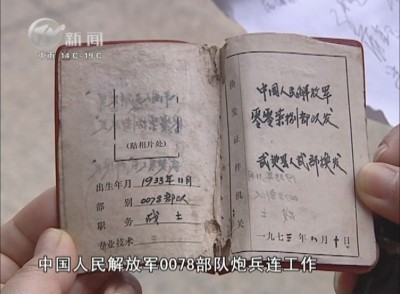 新闻
14℃-19℃
(贴相片处)
出生年月 1933年11月
部别 0078部队
职务 战士
专业技术
发证件机关
中国人民解放军
零零柒捌部队发
武进县人武部换发
一九七三年八月十日
中国人民解放军0078部队炮兵连工作